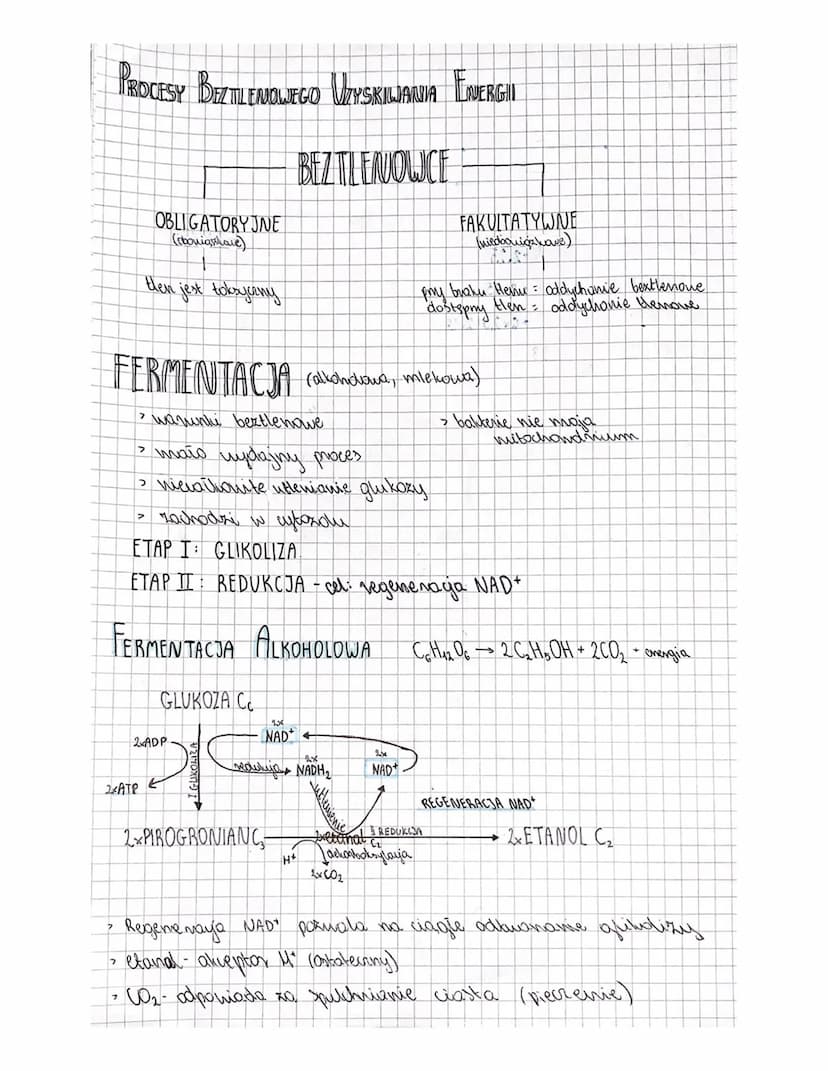 PROCESY BEZTLENOWEGO UZYSKIWANIA ENERGII
BEZTLENOWCE
OBLIGATORYJNE
(obowiązkowe)
tlen jest toksyczny
FAKULTATYWNE
przy braku tlenu = oddychanie beztlenowe
dostępny tlen = oddychanie tlenowe
FERMENTACJA (alkoholowa, mlekowa)
> warunki beztlenowe
> mało wydajny proces
> niecałkowite utlenianie glukozy
> zachodzi w cytozolu
> bakterie nie mają
mitochondrium
ETAP I: GLIKOLIZA
ETAP II: REDUKCJA - cel: regeneracja NAD⁺
FERMENTACJA ALKOHOLOWA C₆H₁₂O₆ → 2C₂H₅OH + 2CO₂ + energia
GLUKOZA C₆
2x
NAD⁺
2xADP
I GLIKOLIZA
redukcja
2x
NADH₂
2x
NAD⁺
2xATP
utlenianie
REGENERACJA NAD⁺
2xPIROGRONIAN C₃
2xetanal C₂
II REDUKCJA
2xETANOL C₂
H⁺
dekarboksylacja
2xCO₂
> Regeneracja NAD⁺ pozwala na ciągłe odtwarzanie glikolizy
> etanal - akceptor H⁺ (ostateczny)
> CO₂ - odpowiada za spulchnianie ciasta (pieczenie)